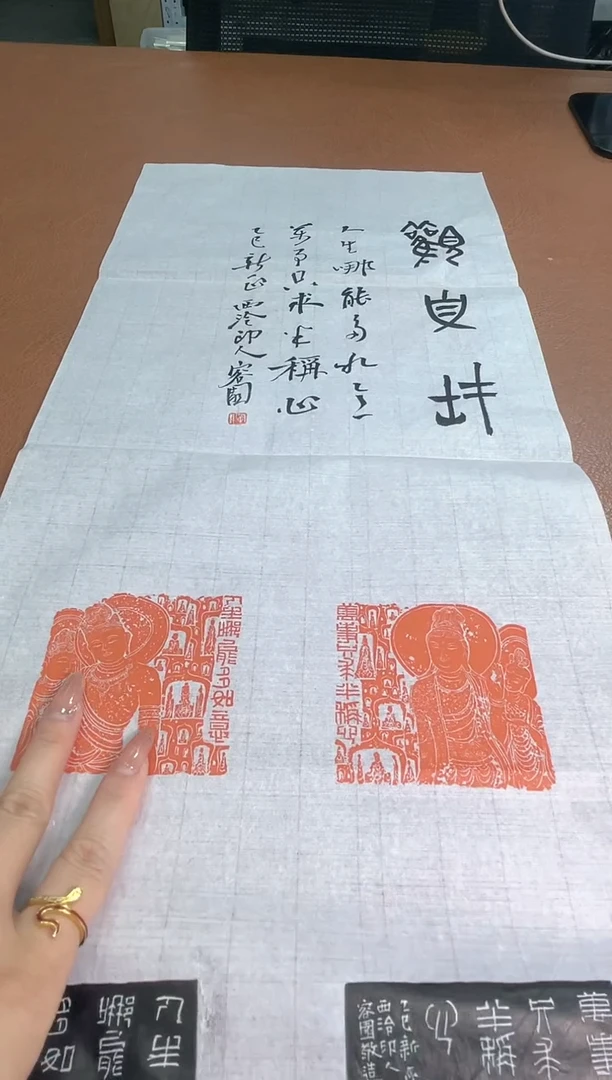 觀自在
人生哪能多如意
萬事只求半稱心
乙巳新正西泠印人
萬事只求半稱心
人生哪能多如意
萬事
只求
半稱
心
乙巳新正
西泠印人
敬造
人生
哪能
多如